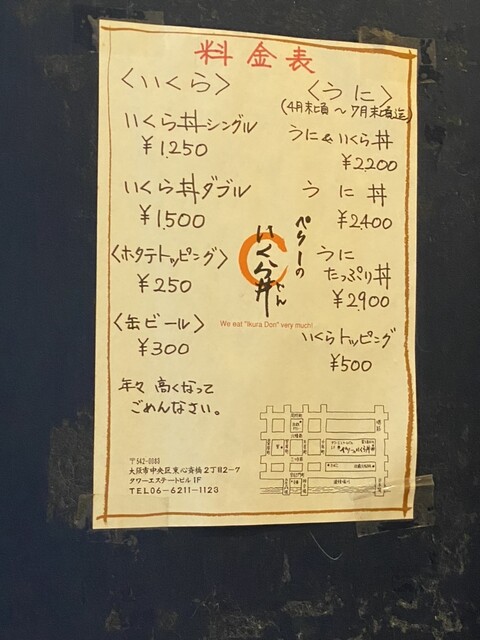 料金表
〈いくら〉
いくら丼シングル
¥1,250
いくら丼ダブル
¥1,500
〈ホタテトッピング〉
¥250
〈缶ビール〉
¥300
年々高くなって
ごめんなさい。
〈うに〉
(4月末頃～7月末頃迄)
うに&いくら丼
¥2,200
うに丼
¥2,400
うに
たっぷり丼
¥2,900
いくらトッピング
¥500
ペリーの
いくら丼
We eat "Ikura Don" very much!
〒542-0083
大阪市中央区東心斎橋2丁目2-7
タワーエステートビル1F
TEL06-6211-1123